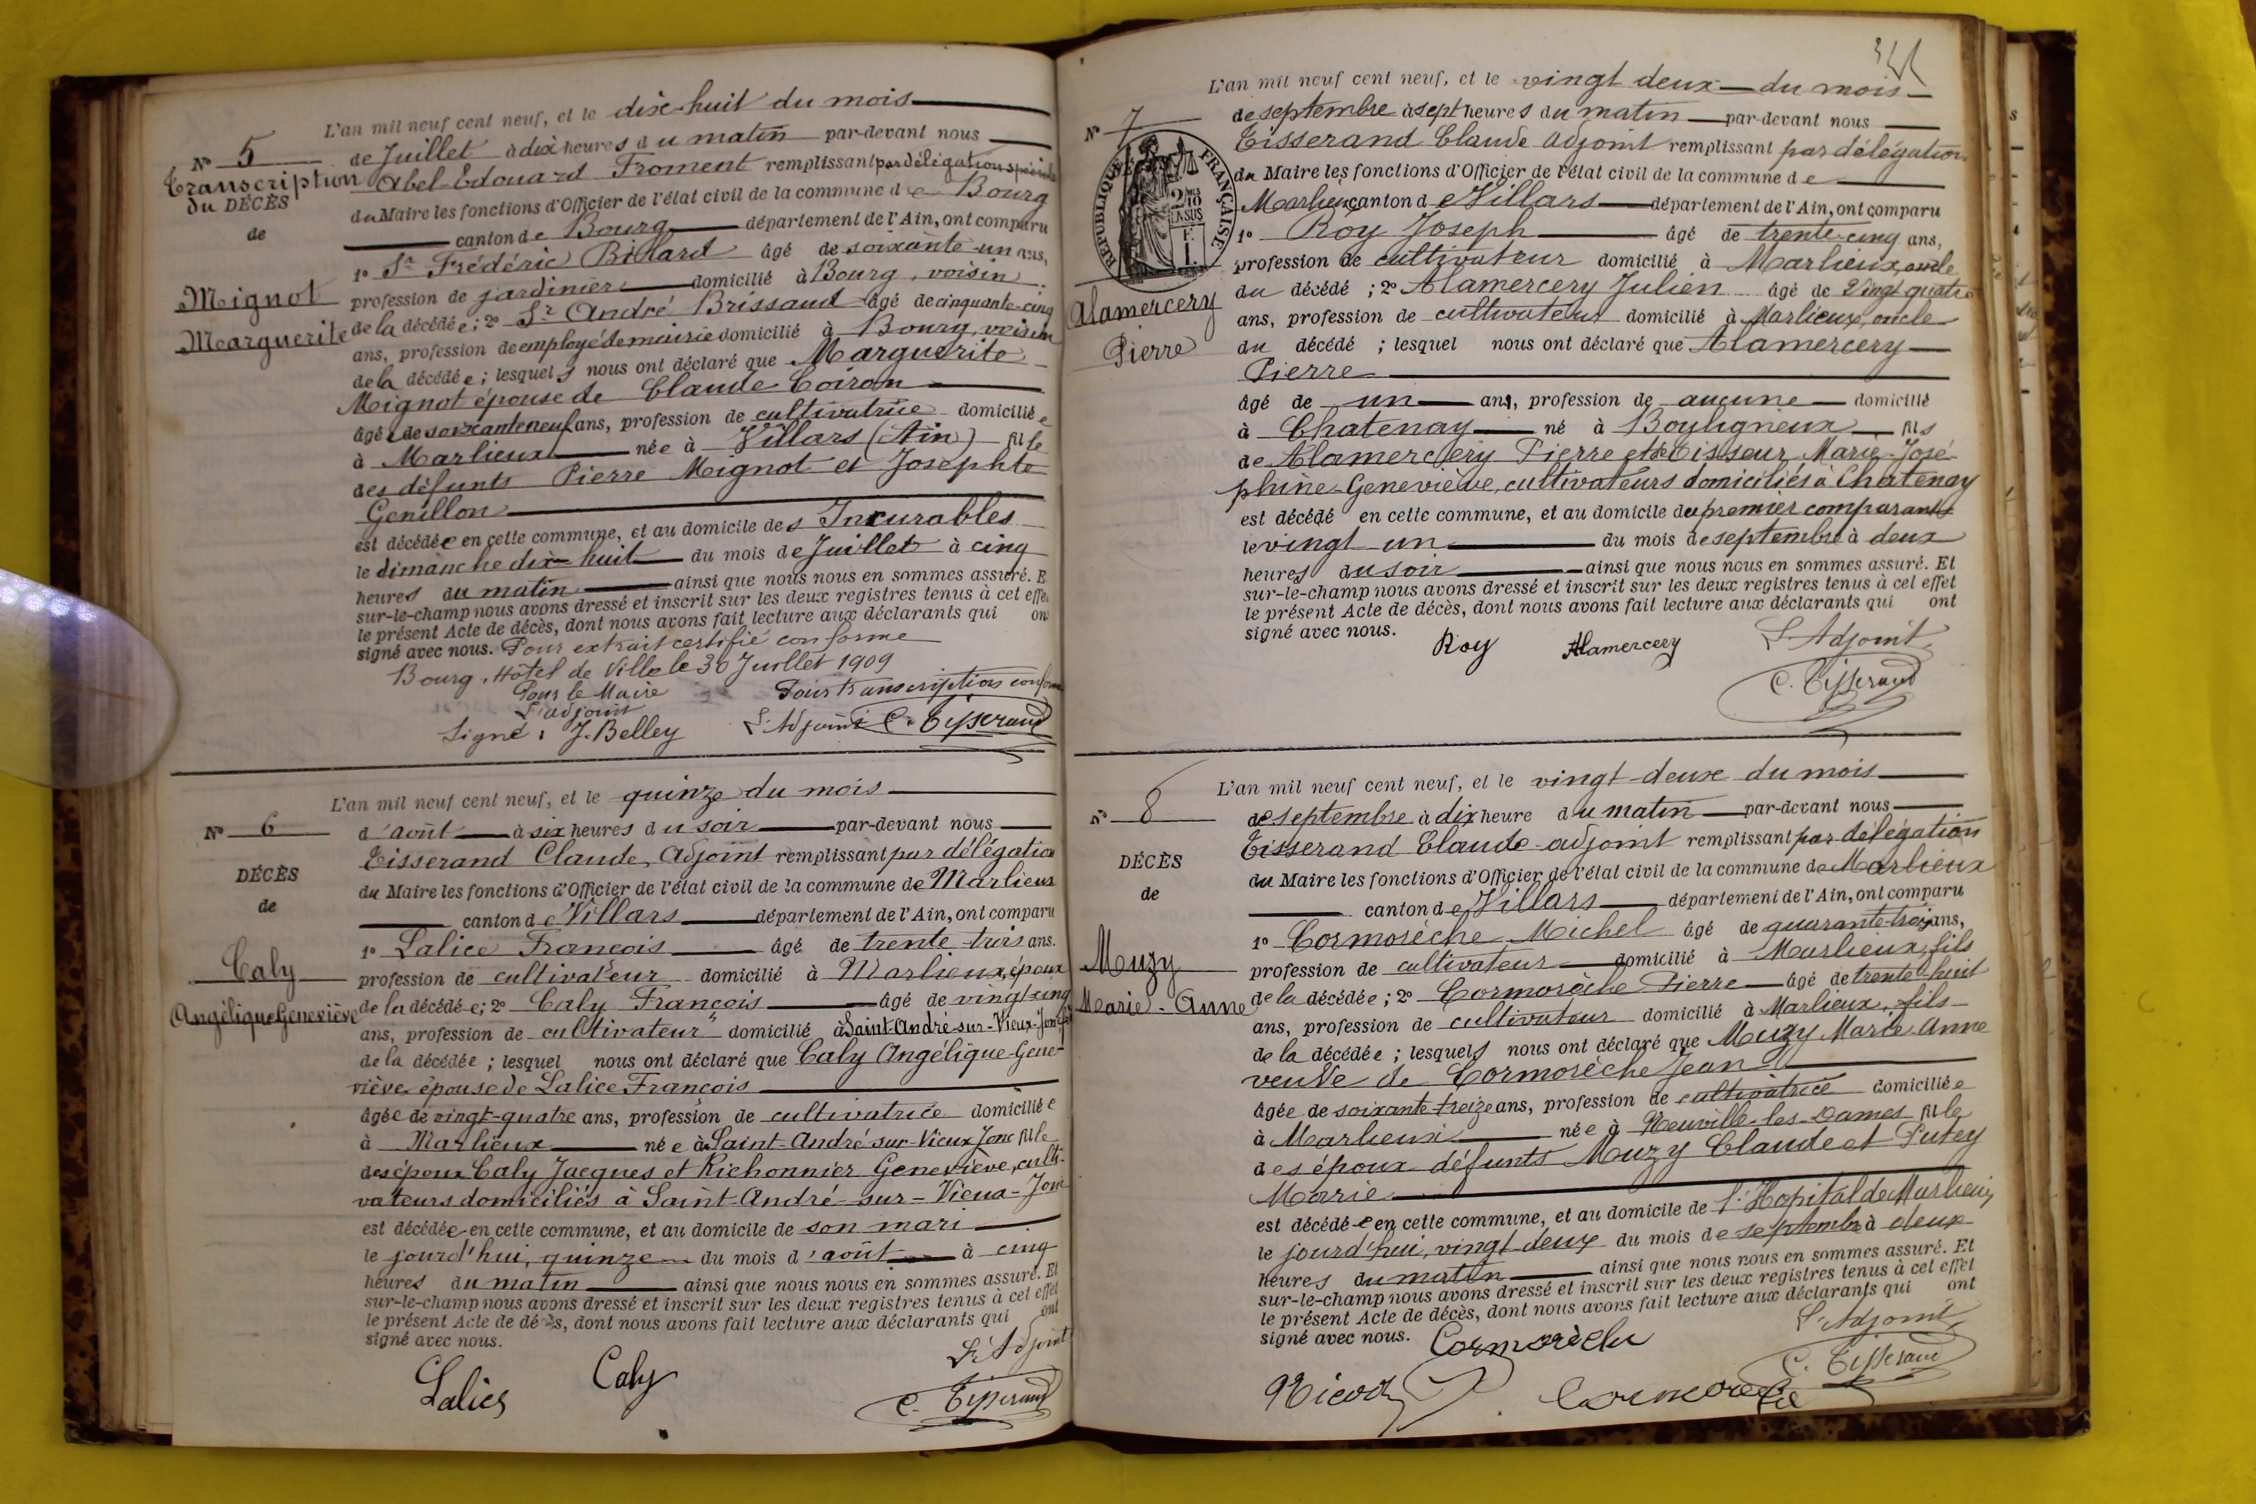 L'an mil neuf cent neuf, et le dix-huit du mois
N° 5 de Juillet à dix heures du matin par-devant nous
Transcription
du DÉCÈS
de
Mignot
Marguerite
Abel-Edouard Froment remplissant par délégation spéciale
du Maire les fonctions d'Officier de l'état civil de la commune de Bourg
canton de Bourg département de l'Ain, ont comparu
1° Sr Frédéric Billard âgé de soixante-un ans,
profession de jardinier domicilié à Bourg, voisin
de la décédée; 2° Sr André Brissaud âgé de cinquante-cinq
ans, profession de employé de mairie domicilié à Bourg, voisin
de la décédée; lesquels nous ont déclaré que Marguerite
Mignot épouse de Claude Coiron
âgée de soixante neuf ans, profession de cultivatrice domiciliée
à Marlieux née à Villars (Ain) fille
des défunts Pierre Mignot et Josephte
Genillon
est décédée en cette commune, et au domicile des Incurables
le dimanche dix-huit du mois de Juillet à cinq
heures du matin ainsi que nous nous en sommes assuré. E
sur-le-champ nous avons dressé et inscrit sur les deux registres tenus à cet effe
le présent Acte de décès, dont nous avons fait lecture aux déclarants qui on
signé avec nous. Pour extrait certifié conforme
Bourg, Hôtel de Ville le 30 Juillet 1909
Pour le Maire
L'adjoint
Signé : J. Belley
Pour transcription conforme
L'Adjoint C. Tisserand
L'an mil neuf cent neuf, et le quinze du mois
N° 6 d'août à six heures du soir par-devant nous
DÉCÈS
de
Caly
Angélique Geneviève
Tisserand Claude, Adjoint remplissant par délégation
du Maire les fonctions d'Officier de l'état civil de la commune de Marlieux
canton de Villars département de l'Ain, ont comparu
1° Lalice François âgé de trente trois ans.
profession de cultivateur domicilié à Marlieux, époux
de la décédée; 2° Caly François âgé de vingt-cinq
ans, profession de cultivateur domicilié à Saint-André-sur-Vieux-Jonc
de la décédée; lesquel nous ont déclaré que Caly Angélique-Gene-
viève épouse de Lalice François
âgée de vingt-quatre ans, profession de cultivatrice domiciliée
à Marlieux née à Saint-André-sur-Vieux Jonc fille
des époux Caly Jacques et Richonnier Geneviève, culti-
vateurs domiciliés à Saint-André-sur-Vieux-Jonc
est décédée en cette commune, et au domicile de son mari
le jourd'hui, quinze du mois d'août à cinq
heures du matin ainsi que nous nous en sommes assuré. Et
sur-le-champ nous avons dressé et inscrit sur les deux registres tenus à cet effet
le présent Acte de décès, dont nous avons fait lecture aux déclarants qui ont
signé avec nous.
L'Adjoint
Lalice Caly C. Tisserand
L'an mil neuf cent neuf, et le vingt deux du mois
N° 7 de septembre à sept heures du matin par-devant nous
RÉPUBLIQUE FRANÇAISE
2/10 EN SUS
Alamercery
Pierre
Tisserand Claude adjoint remplissant par délégation
du Maire les fonctions d'Officier de l'état civil de la commune de
Marlieux canton de Villars département de l'Ain, ont comparu
1° Roy Joseph âgé de trente-cinq ans,
profession de cultivateur domicilié à Marlieux, oncle
du décédé; 2° Alamercery Julien âgé de vingt quatre
ans, profession de cultivateur domicilié à Marlieux, oncle
du décédé; lesquel nous ont déclaré que Alamercery
Pierre
âgé de un an, profession de aucune domicilié
à Chatenay né à Bouligneux fils
de Alamercery Pierre et de Tisseur Marie-José-
phine-Geneviève, cultivateurs domiciliés à Chatenay
est décédé en cette commune, et au domicile du premier comparant
le vingt un du mois de septembre à deux
heures du soir ainsi que nous nous en sommes assuré. Et
sur-le-champ nous avons dressé et inscrit sur les deux registres tenus à cet effet
le présent Acte de décès, dont nous avons fait lecture aux déclarants qui ont
signé avec nous.
Roy Alamercery L'Adjoint
C. Tisserand
L'an mil neuf cent neuf, et le vingt-deux du mois
N° 8 de septembre à dix heure du matin par-devant nous
DÉCÈS
de
Muzy
Marie-Anne
Tisserand Claude adjoint remplissant par délégation
du Maire les fonctions d'Officier de l'état civil de la commune de Marlieux
canton de Villars département de l'Ain, ont comparu
1° Cormorèche Michel âgé de quarante-trois ans,
profession de cultivateur domicilié à Marlieux, fils
de la décédée; 2° Cormorèche Pierre âgé de trente-huit
ans, profession de cultivateur domicilié à Marlieux, fils
de la décédée; lesquels nous ont déclaré que Muzy Marie-Anne
veuve de Cormorèche Jean
âgée de soixante treize ans, profession de cultivatrice domiciliée
à Marlieux née à Neuville-les-Dames fille
des époux défunts Muzy Claude et Putey
Marie
est décédée en cette commune, et au domicile de l'Hopital de Marlieux
le jourd'hui, vingt deux du mois de septembre à deux
heures du matin ainsi que nous nous en sommes assuré. Et
sur-le-champ nous avons dressé et inscrit sur les deux registres tenus à cet effet
le présent Acte de décès, dont nous avons fait lecture aux déclarants qui ont
signé avec nous. Cormorèche L'Adjoint
C. Tisserand
Cormorèche